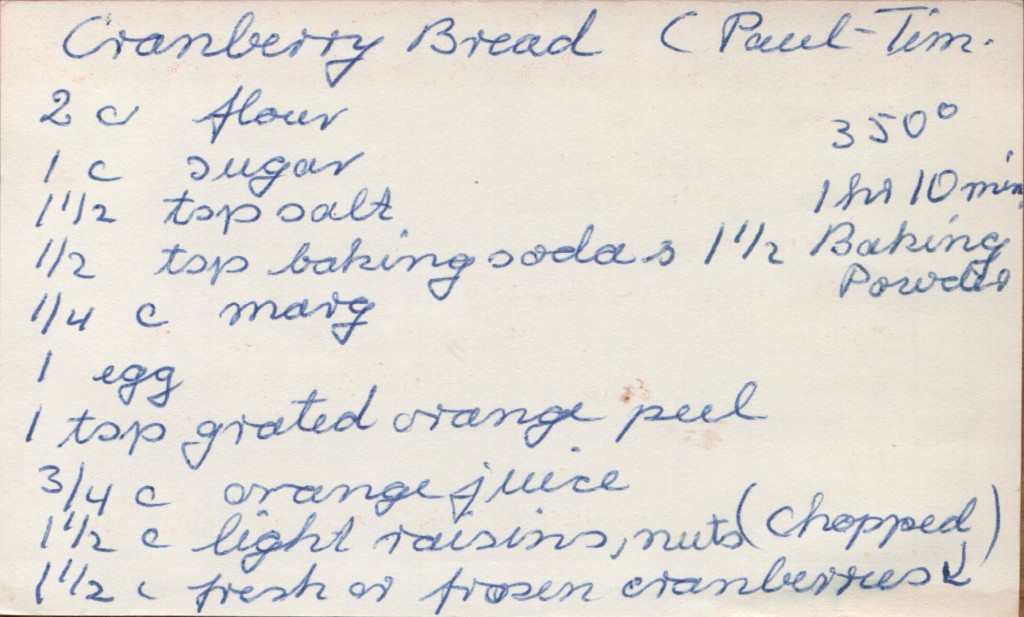 Cranberry Bread (Paul-Tim.
2 c flour
350°
1 c sugar
1 hr 10 min
1 1/2 tsp salt
1/2 tsp baking soda & 1 1/2 Baking
Powder
1/4 c marg
1 egg
1 tsp grated orange peel
3/4 c orange juice
1 1/2 c light raisins, nuts (chopped)
1 1/2 c fresh or frozen cranberries ↓